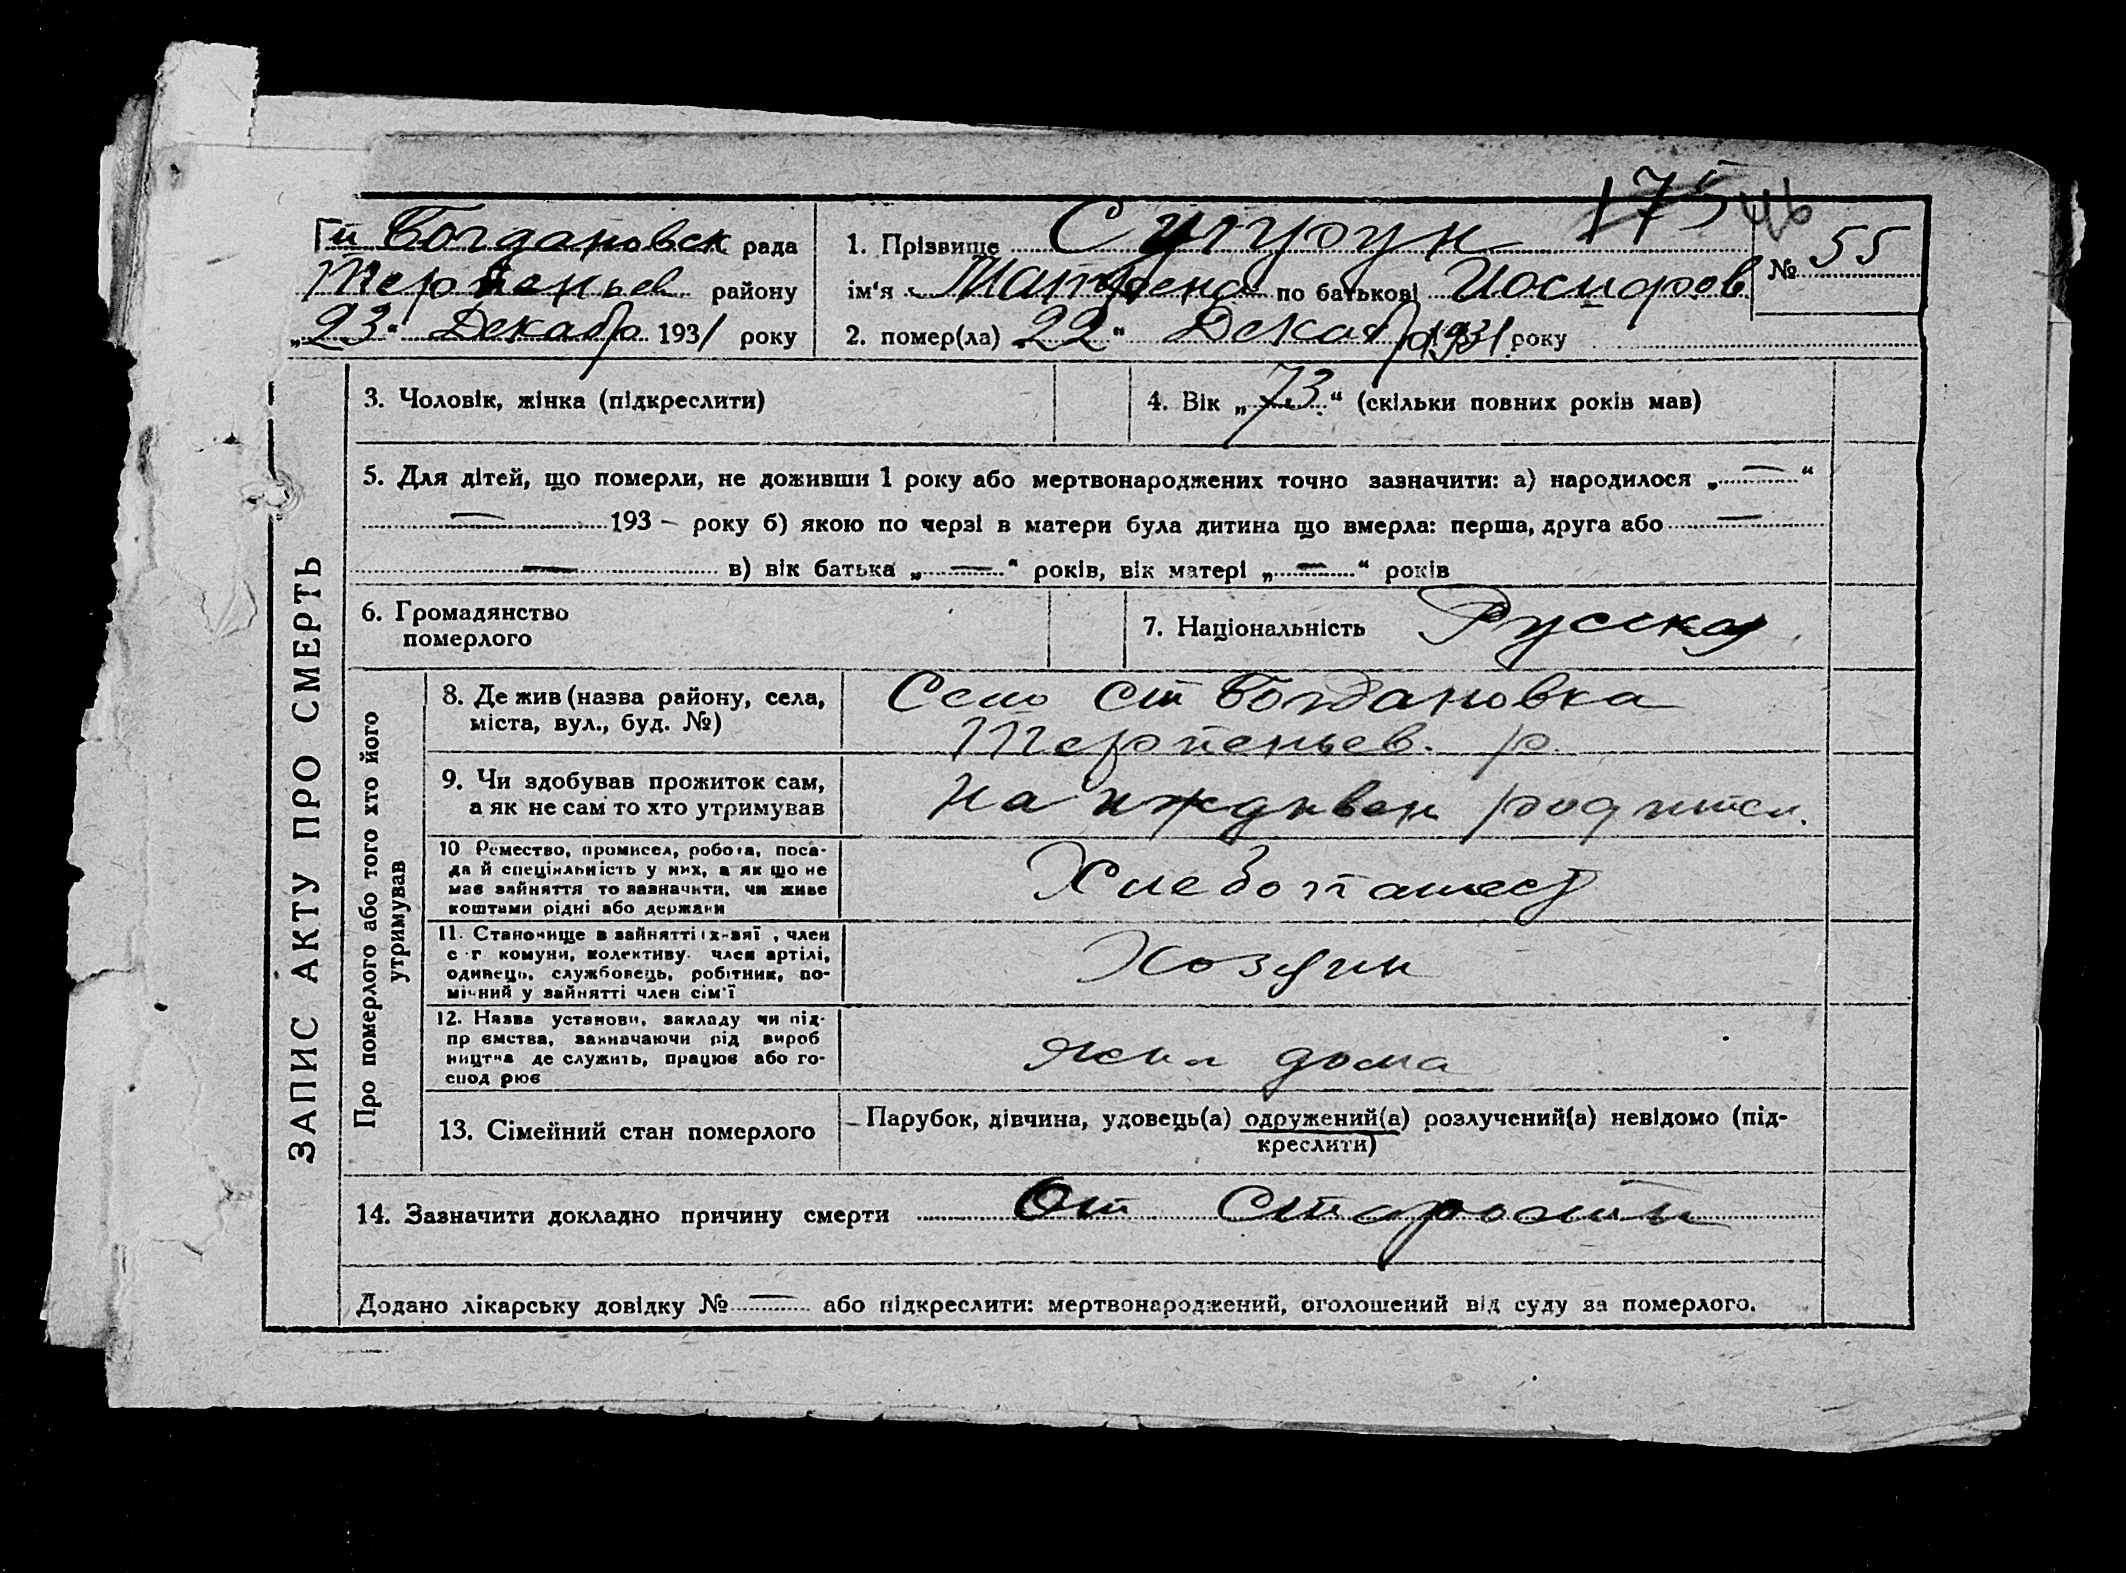 175 46
Ст Богдановск рада
Терпеньев району
„23“ Декабр 1931 року
1. Прізвище
ім'я Матрена по батькові Иосифов
2. помер(ла) 22 “ Декабр 1931 року
№ 55
ЗАПИС АКТУ ПРО СМЕРТЬ
3. Чоловік, жінка (підкреслити)
4. Вік „73“ (скільки повних років мав)
5. Для дітей, що померли, не доживши 1 року або мертвонароджених точно зазначити: а) народилося „—“
— 193 – року б) якою по черзі в матери була дитина що вмерла: перша, друга або —
— в) вік батька „—“ років, вік матері „—“ років
6. Громадянство
померлого
7. Національність Русская
Про померлого або того хто його
утримував
8. Де жив (назва району, села,
міста, вул., буд. №)
Село Ст Богдановка
Терпеньев. р.
9. Чи здобував прожиток сам,
а як не сам то хто утримував
На иждивен родител.
10 Ремество, промисел, робота, поса-
да й спеціяльність у них, а як що не
мав зайняття то зазначити, чи живе
коштами рідні або держави
Хлебопашест
11. Становище в зайнятті , член
с-г комуни, колективу. член артілі,
одинець, службовець, робітник, по-
мічний у зайнятті член сім'ї
Хозяин
12. Назва установи, закладу чи під-
пр ємства, зазначаючи рід вироб
ництва де служить, працює або го-
спод рює
дома
13. Сімейний стан померлого
Парубок, дівчина, удовець(а) одружений(а) розлучений(а) невідомо (під-
креслити)
14. Зазначити докладно причину смерти От Старости
Додано лікарську довідку № — або підкреслити: мертвонароджений, оголошений від суду за померлого.